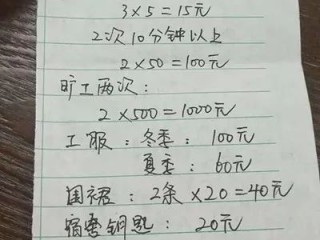 3×5=15元
2次10分钟以上
2×50=100元
旷工两次:
2×500=1000元
工服:冬季:100元
夏季:60元
围裙:2条×20=40元
宿舍钥匙:20元